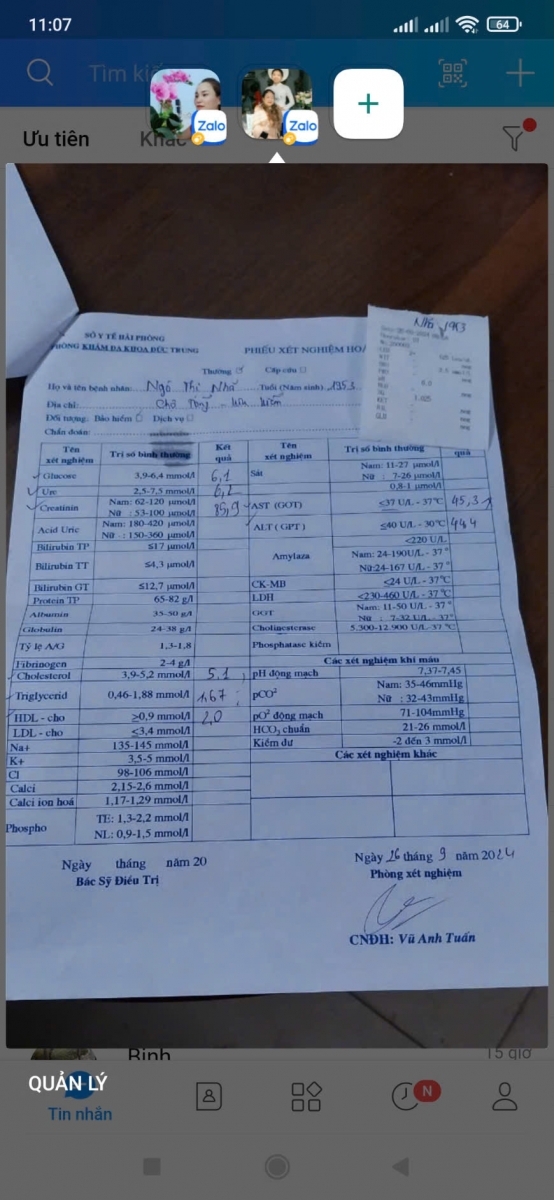 11:07
64
Tìm
Zalo
Zalo
+
Ưu tiên
Khác
SỞ Y TẾ HẢI PHÒNG
PHÒNG KHÁM ĐA KHOA ĐỨC TRUNG
PHIẾU XÉT NGHIỆM HOÁ
Nhớ 1953
Thường Cấp cứu
Họ và tên bệnh nhân: Ngô Thị Nhớ Tuổi (Năm sinh) 1953
Địa chỉ:
Đối tượng: Bảo hiểm Dịch vụ
Chẩn đoán:
Tên xét nghiệm Trị số bình thường Kết quả Tên xét nghiệm Trị số bình thường quả
Glucose 3,9-6,4 mmol/l 6,1 Sắt Nam: 11-27 µmol/l
Nữ : 7-26 µmol/l
Ure 2,5-7,5 mmol/l 6,2 0,8-1 µmol/l
Creatinin Nam: 62-120 µmol/l
Nữ : 53-100 µmol/l 85,9 AST (GOT) ≤37 U/L - 37°C 45,31
Acid Uric Nam: 180-420 µmol/l
Nữ : 150-360 µmol/l ALT ( GPT ) ≤40 U/L - 30°C 44,4
Bilirubin TP ≤17 µmol/l <220 U/L
Bilirubin TT ≤4,3 µmol/l Amylaza Nam: 24-190U/L - 37 °
Nữ:24-167 U/L - 37 °
Bilirubin GT ≤12,7 µmol/l CK-MB <24 U/L - 37°C
Protein TP 65-82 g/l LDH <230-460 U/L - 37°C
Albumin 35-50 g/l GGT Nam: 11-50 U/L - 37 °
Nữ : 7-32 U/L - 37°
Globulin 24-38 g/l Cholinesterase 5.300-12.900 U/L-37°C
Tỷ lệ A/G 1,3-1,8 Phosphatase kiềm
Fibrinogen 2-4 g/l Các xét nghiệm khí máu
Cholesterol 3,9-5,2 mmol/l 5,1 pH động mạch 7,37-7,45
Triglycerid 0,46-1,88 mmol/l 1,67 pCO² Nam: 35-46mmHg
Nữ : 32-43mmHg
HDL - cho ≥0,9 mmol/l 2,0 pO² động mạch 71-104mmHg
LDL - cho ≤3,4 mmol/l HCO₃ chuẩn 21-26 mmol/l
Na+ 135-145 mmol/l Kiềm dư -2 đến 3 mmol/l
K+ 3,5-5 mmol/l Các xét nghiệm khác
Cl 98-106 mmol/l
Calci 2,15-2,6 mmol/l
Calci ion hoá 1,17-1,29 mmol/l
Phospho TE: 1,3-2,2 mmol/l
NL: 0,9-1,5 mmol/l
Ngày tháng năm 20
Bác Sỹ Điều Trị
Ngày 26 tháng 9 năm 2024
Phòng xét nghiệm
CNĐH: Vũ Anh Tuấn
Bình
15 giờ
QUẢN LÝ
N
Tin nhắn